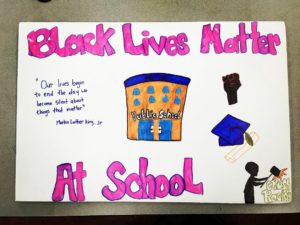 Black Lives Matter
"Our lives begin
to end the day we
become silent about
things that matter"
Martin Luther King, Jr
Public School
At School